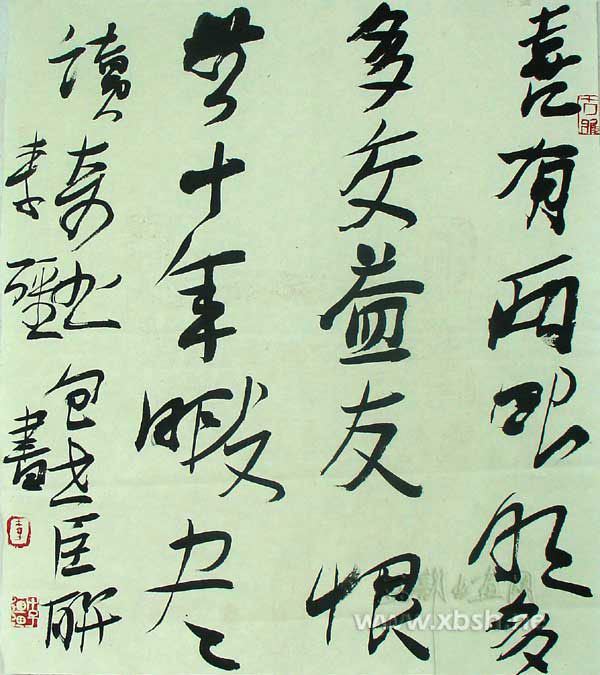 喜有兩眼明多
多交益友恨
無十年暇尽
讀奇書包世臣聯
書
www.xbsh.ne